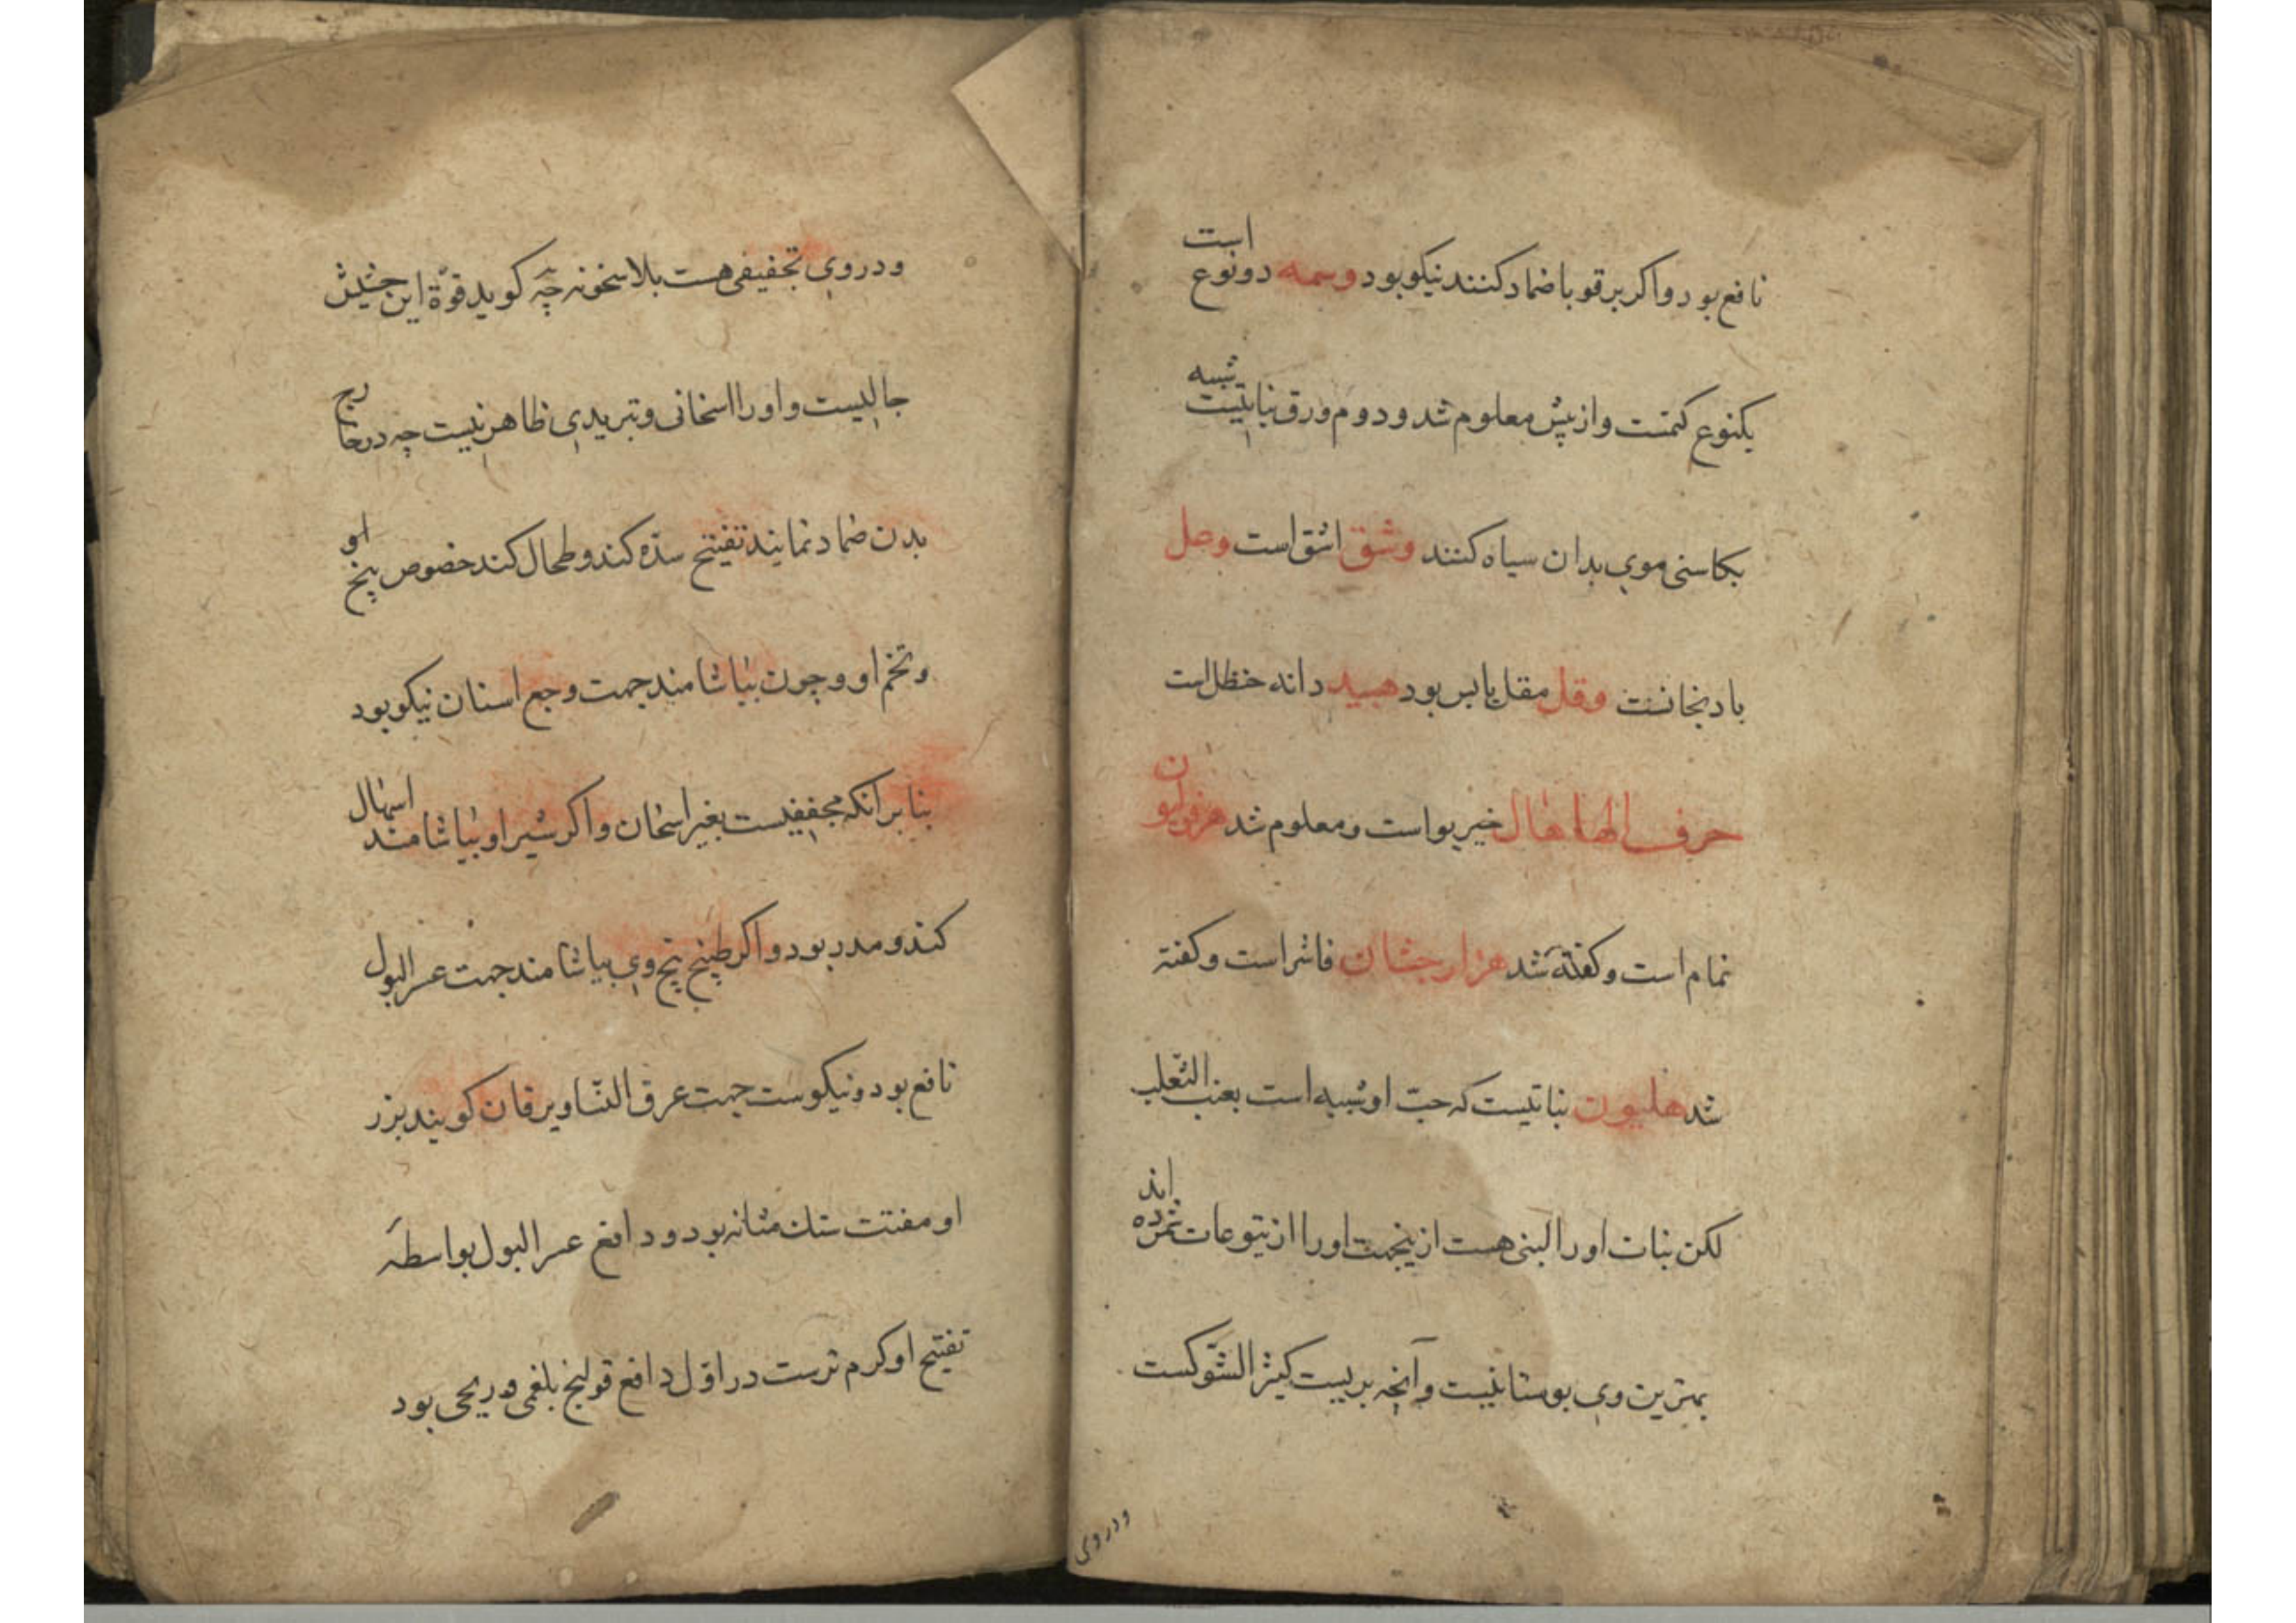 نافع بود و اکر بر قوبا ضماد کنند نیکو بود وسمه دو نوع است
یکنوع کتمست و از پیش معلوم شد و دوم ورق نباتیست شبیه
بکاسنی موی بدان سیاه کنند وشق اشق است وصل
بادنجانست وقل مقل یابس بود هبید دانه حنظل است
حرف الهاء هال خیربوا است و معلوم شد هرنولیون
نمام است و کفته شد هزارجشان فاشرا است و کفته
شد هلیون نباتیست که حبّ او شبیه است بعنب الثّعلب
لکن نبات او را لبنی هست ازینجهت او را از یتوعات شمرده اند
بهترین وی بوستانیست و آنچه بریست کثیر الشّوکست
و در وی
و در وی تجفیفی هست بلا سخونه چه کوید قوّة این حشیش
جالیست و او را اسخانی و تبریدی ظاهر نیست چه در خارج
بدن ضماد نمایند تفتیح سدّه کند و طحال کند خصوص بیخ او
و تخم او و چون بیاشامند جهت وجع اسنان نیکو بود
بنابر آنکه مجففیست بغیر اسخان و اکر شیر او بیاشامند اسهال
کند و مدر بود و اکر طبیخ بیخ وی بیاشامند جهت عسر البول
نافع بود و نیکوست جهت عرق النّسا و یرقان کویند بزر
او مفتت سنک مثانه بود و دافع عسر البول بواسطهٔ
تفتیح او کرم ترست در اوّل دافع قولنج بلغمی و ریحی بود